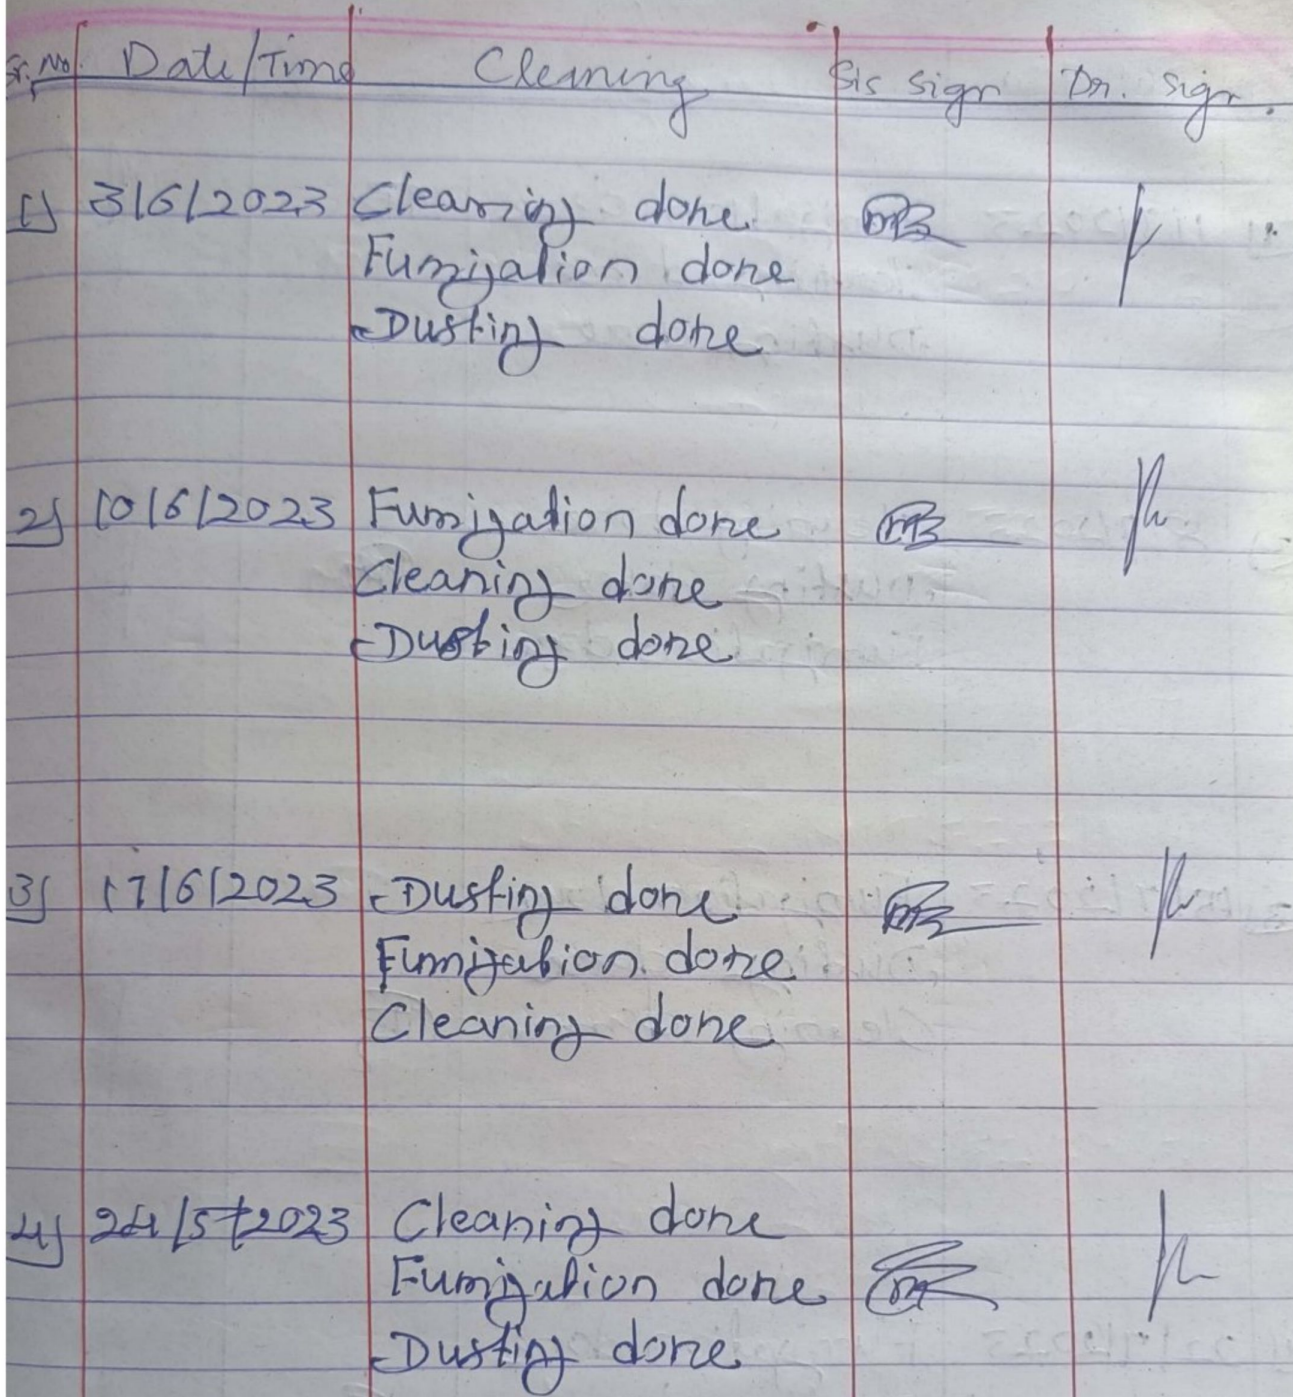 Sr. No. Date/Time Cleaning Sis sign Dr. sign.
1) 3/6/2023 Cleaning done
Fumigation done
Dusting done
2) 10/6/2023 Fumigation done
Cleaning done
Dusting done
3) 17/6/2023 Dusting done
Fumigation done
Cleaning done
4) 24/5/2023 Cleaning done
Fumigation done
Dusting done